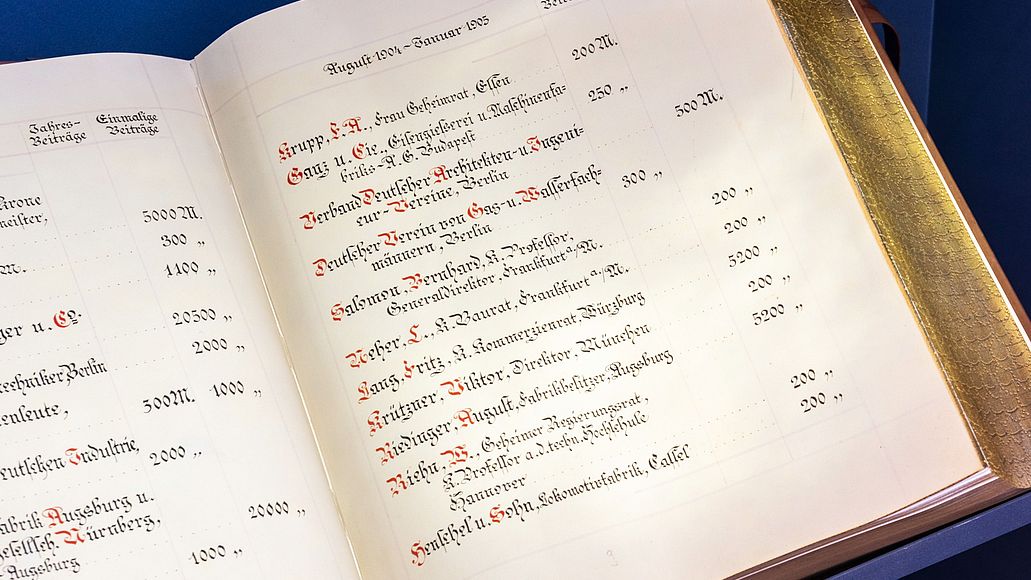 Jahres-
Beiträge
Einmalige
Beiträge
Krone
meister,
5000 M.
300 „
M.
1100 „
ger u. Co.
20500 „
2000 „
techniker, Berlin
enleute,
500 M. 1000 „
eutschen Industrie,
2000 „
abrik Augsburg u.
gesellsch. Nürnberg,
20000 „
Augsburg
1000 „
August 1904 ~ Januar 1905
Krupp, F. A., Frau Geheimrat, Essen
200 M.
Ganz u. Cie., Eisengießerei u. Maschinenfa-
briks-A. G. Budapest
250 „
Verband Deutscher Architekten- u. Ingeni-
eur-Vereine, Berlin
500 M.
Deutscher Verein von Gas- u. Wasserfach-
männern, Berlin
300 „
Salomon, Bernhard, K. Professor,
Generaldirektor, Frankfurt a/M.
200 „
Neher, L., K. Baurat, Frankfurt a/M.
200 „
Lang, Fritz, K. Kommerzienrat, Würzburg
5200 „
Krützner, Viktor, Direktor, München
200 „
Riedinger, August, Fabrikbesitzer, Augsburg
5200 „
Riehn, W., Geheimer Regierungsrat,
K. Professor a. d. techn. Hochschule
Hannover
200 „
Henschel u. Sohn, Lokomotivfabrik, Cassel
200 „